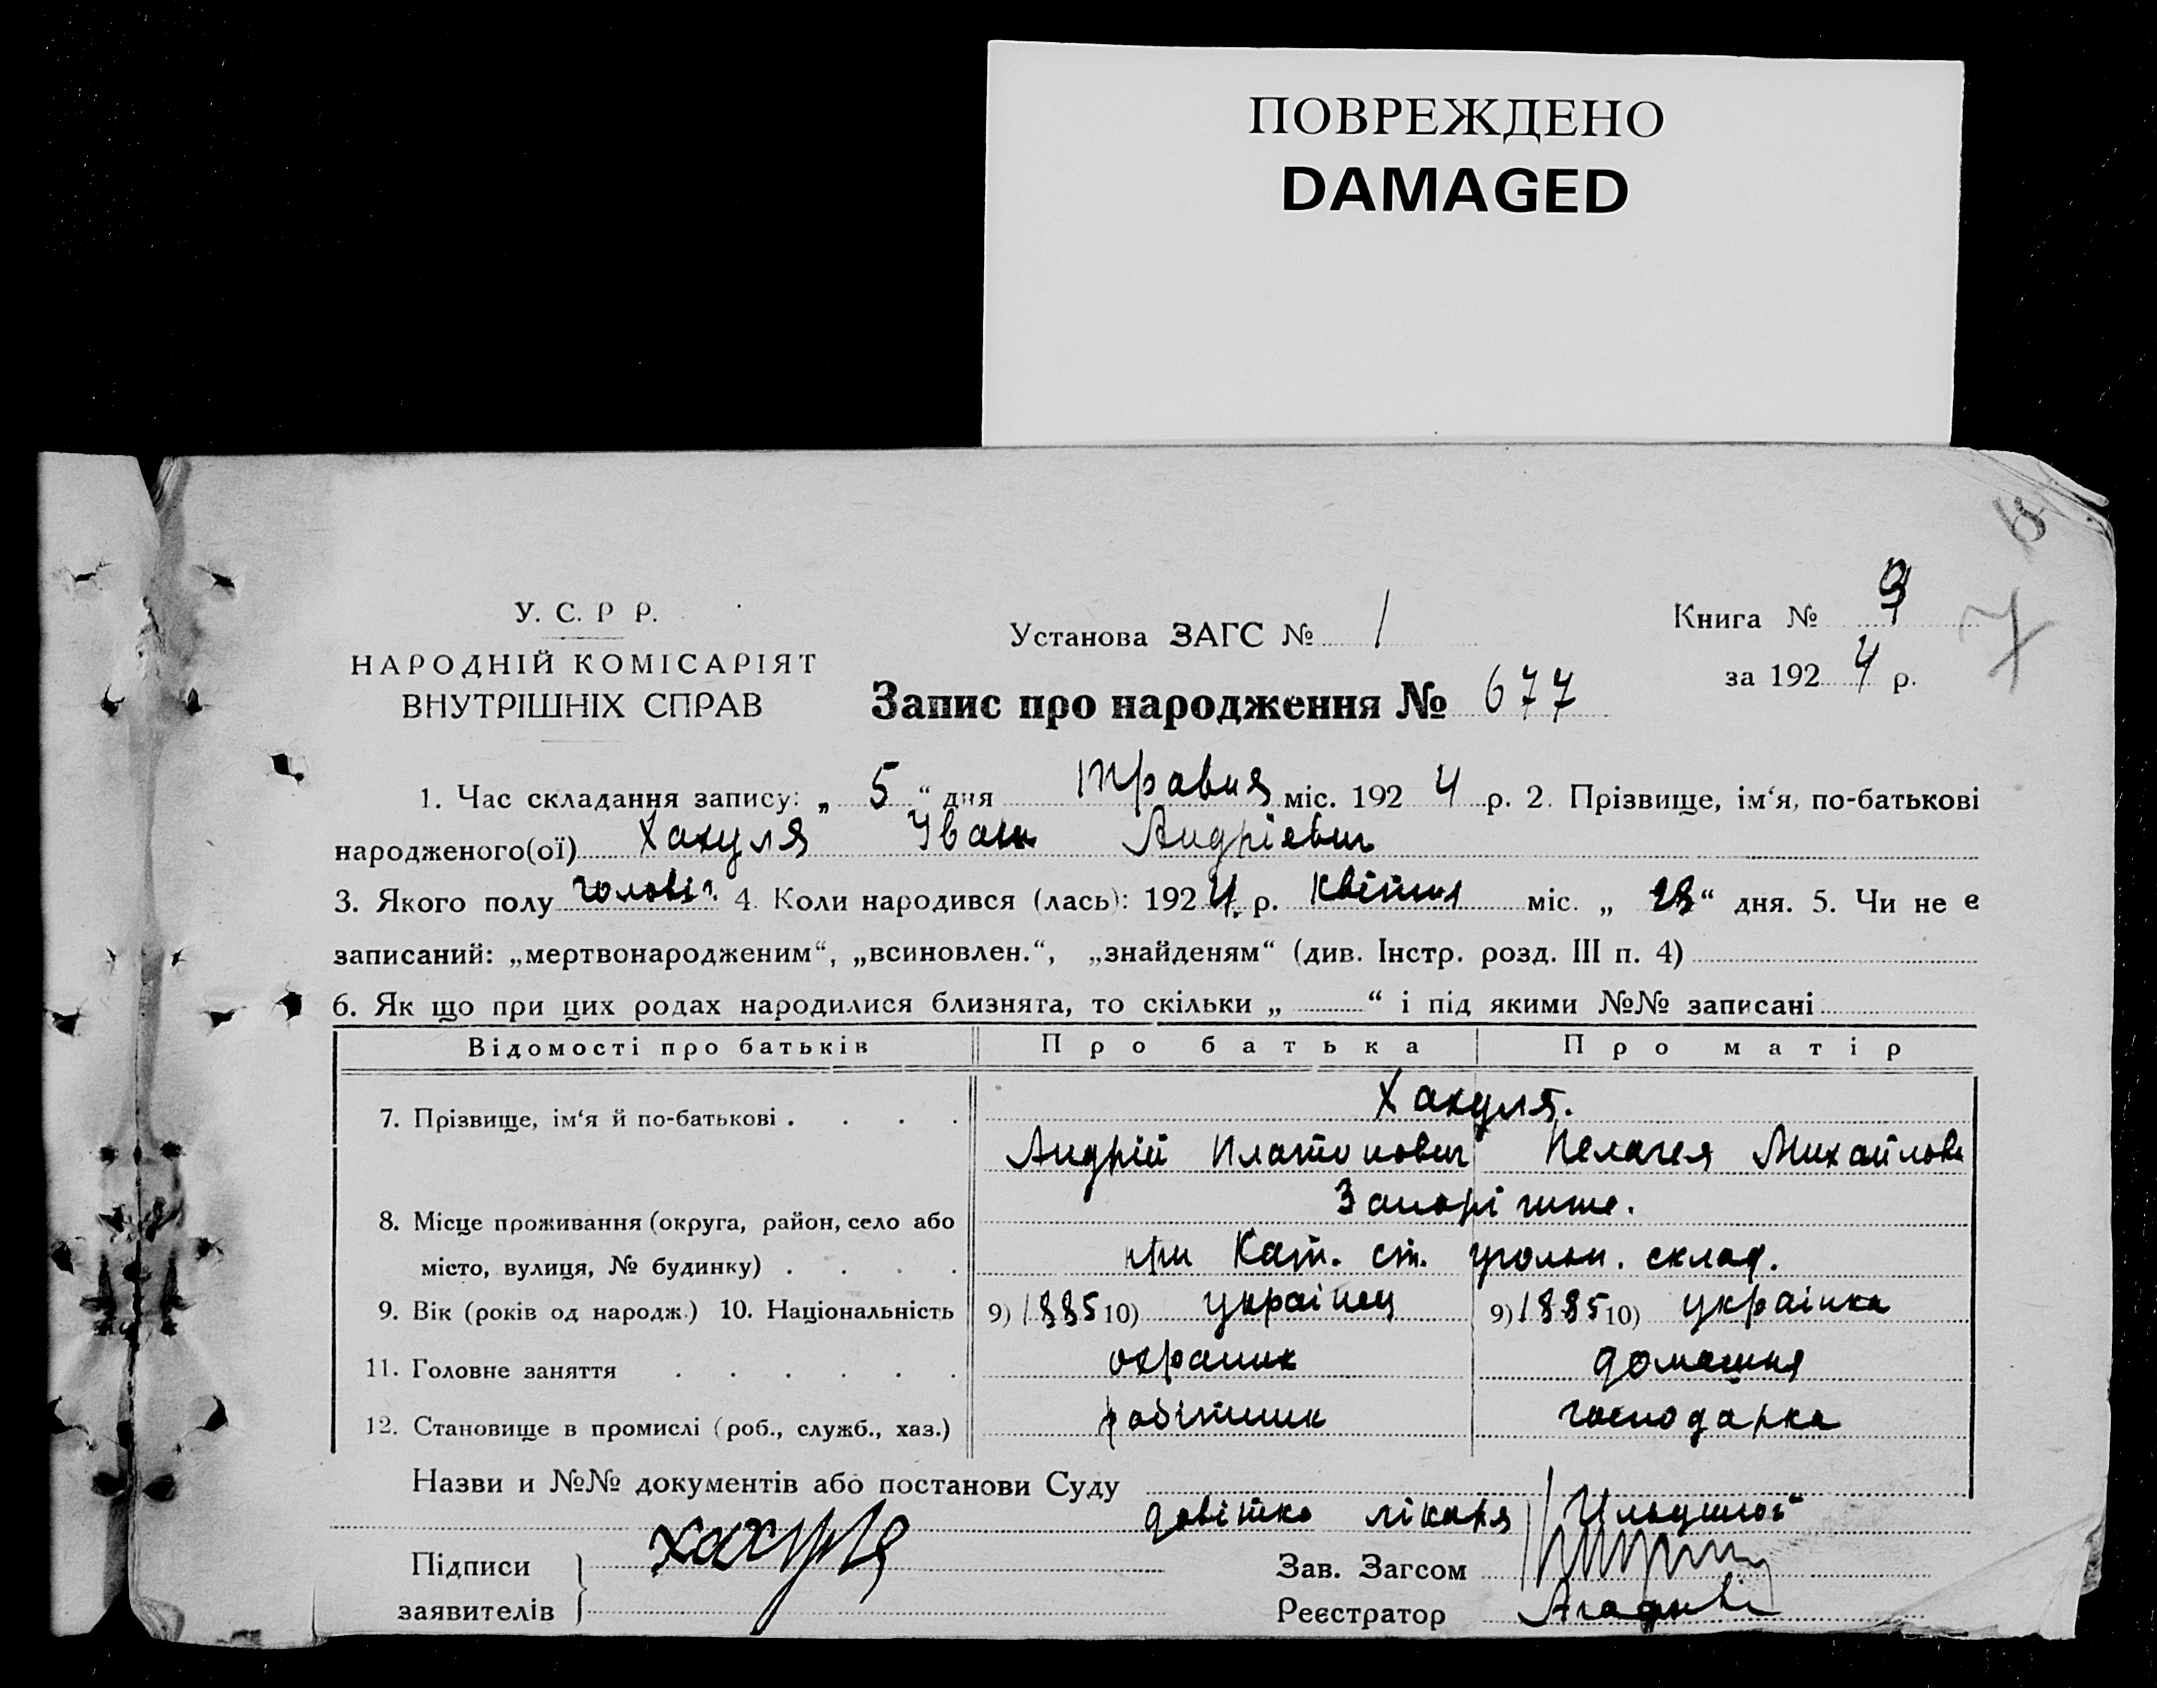 ПОВРЕЖДЕНО
DAMAGED
У. С. Р Р.
НАРОДНІЙ КОМІСАРІЯТ
ВНУТРІШНІХ СПРАВ
Установа ЗАГС № 1
Запис про народження № 677
Книга № 9
за 1924 р.
7
1. Час складання запису: „ 5 “ дня травня міс. 1924 р. 2. Прізвище, ім‘я, по-батькові
народженого(ої) Хахуля Іван Андрієвич
3. Якого полу чоловіч. 4. Коли народився (лась): 1924 р. квітня міс. „ 28 “ дня. 5. Чи не є
записаний: „мертвонародженим“, „всиновлен.“, „знайденям“ (див. Інстр. розд. III п. 4)
6. Як що при цих родах народилися близнята, то скільки „ “ і під якими №№ записані
Відомості про батьків Про батька Про матір
7. Прізвище, ім‘я й по-батькові . . . . Хахуля.
Андрій Платонович Пелагея Михайлова
8. Місце проживання (округа, район, село або Запоріжже.
місто, вулиця, № будинку) . . . . при Кат. ст. угольн. склад.
9. Вік (років од народж.) 10. Національність 9) 1885 10) українец 9) 1885 10) українка
11. Головне заняття . . . . . . охраник домашня
12. Становище в промислі (роб., служб., хаз.) робітник господарка
Назви и №№ документів або постанови Суду
довітка лікаря
Підписи Хахуля Зав. Загсом
заявителів Реєстратор